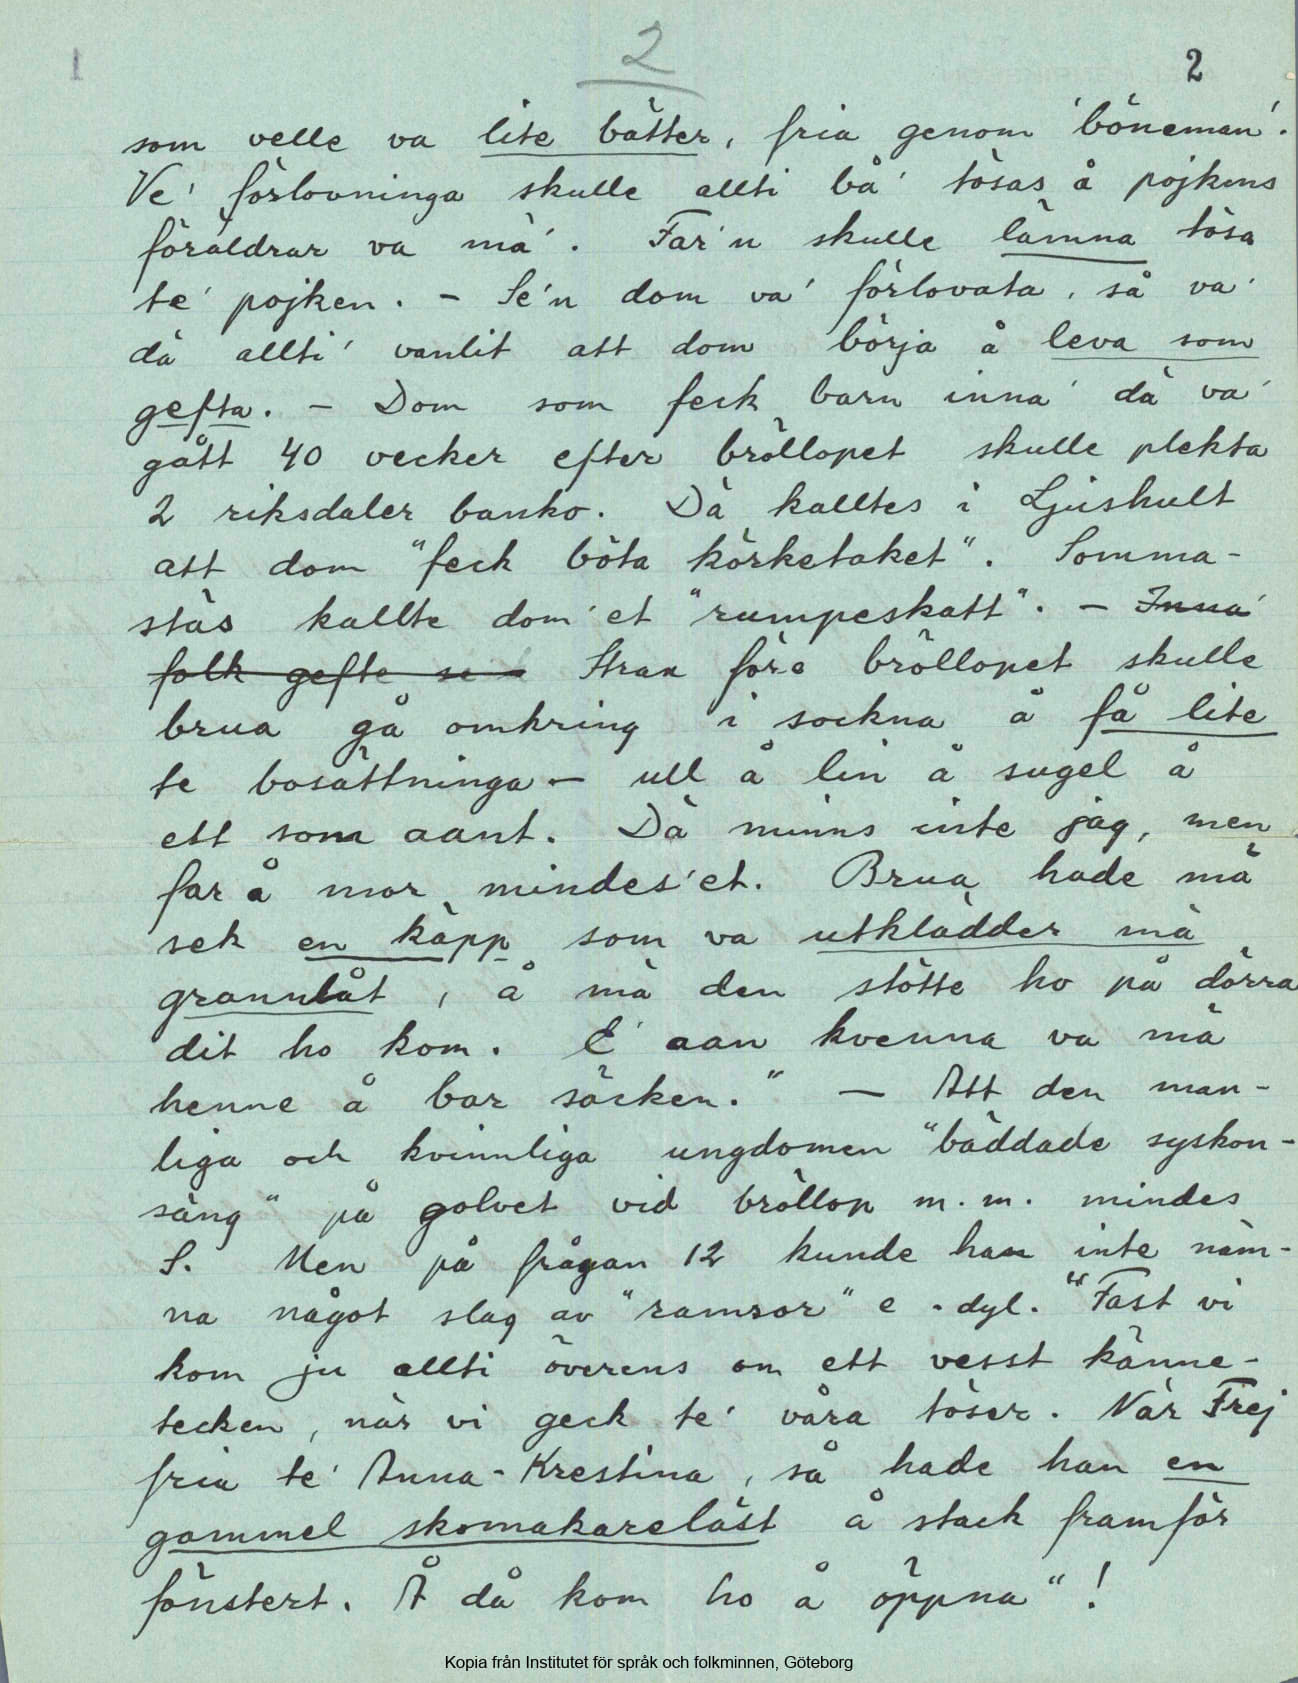 1
2
2
som velle va lite bätter, fria genom 'böneman'.
Ve' förlovninga skulle allti bå' tösas å pojkens
föräldrar va mä'. Far'n skulle lämna tösa
te' pojken. - Se'n dom va' förlovata, så va'
dä allti' vanlit att dom börja å leva som
gefta. - Dom som feck barn inna' dä va'
gått 40 vecker efter bröllopet skulle plekta
2 riksdaler banko. Dä kalltes i Ljushult
att dom "feck böta körketaket". Somma-
stäs kallte dom'et "rumpeskatt". - Inna'
folk gefte se Strax före bröllopet skulle
brua gå omkring i sockna å få lite
te bosättninga - ull å lin å sugel å
ett som aant. Dä minns inte jag, men
far å mor mindes'et. Brua hade mä
sek en käpp som va utklädder mä
grannlåt, å mä den stötte ho på dörra
dit ho kom. E' aan kvenna va mä
henne å bar säcken." - Att den man-
liga och kvinnliga ungdomen "bäddade syskon-
säng" på golvet vid bröllop m.m. mindes
S. Men på frågan 12 kunde han inte näm-
na något slag av "ramsor" e.dyl. "Fast vi
kom ju allti överens om ett vesst känne-
tecken, när vi geck te' våra töser. När Frej
fria te' Anna-Krestina, så hade han en
gammel skomakareläst å stack framför
fönstert. Å då kom ho å öppna"!
Kopia från Institutet för språk och folkminnen, Göteborg